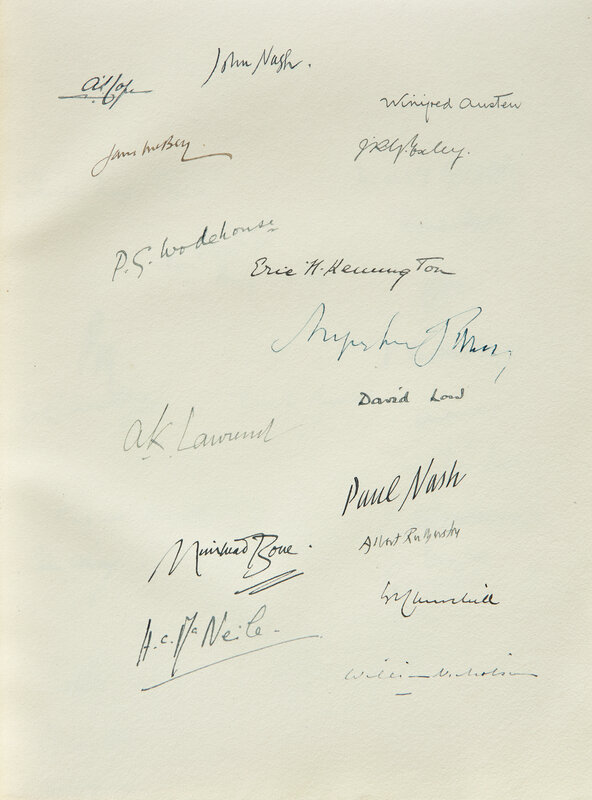 John Nash.
A. S. Cope
Winifred Austen
James McBey
J.R.G. Exley.
P. G. Wodehouse
Eric H. Kennington
Augustus John
David Low
A.K. Lawrence
Paul Nash
Albert Rutherston
Muirhead Bone.
W Churchill
H. C. McNeile.
William Nicholson